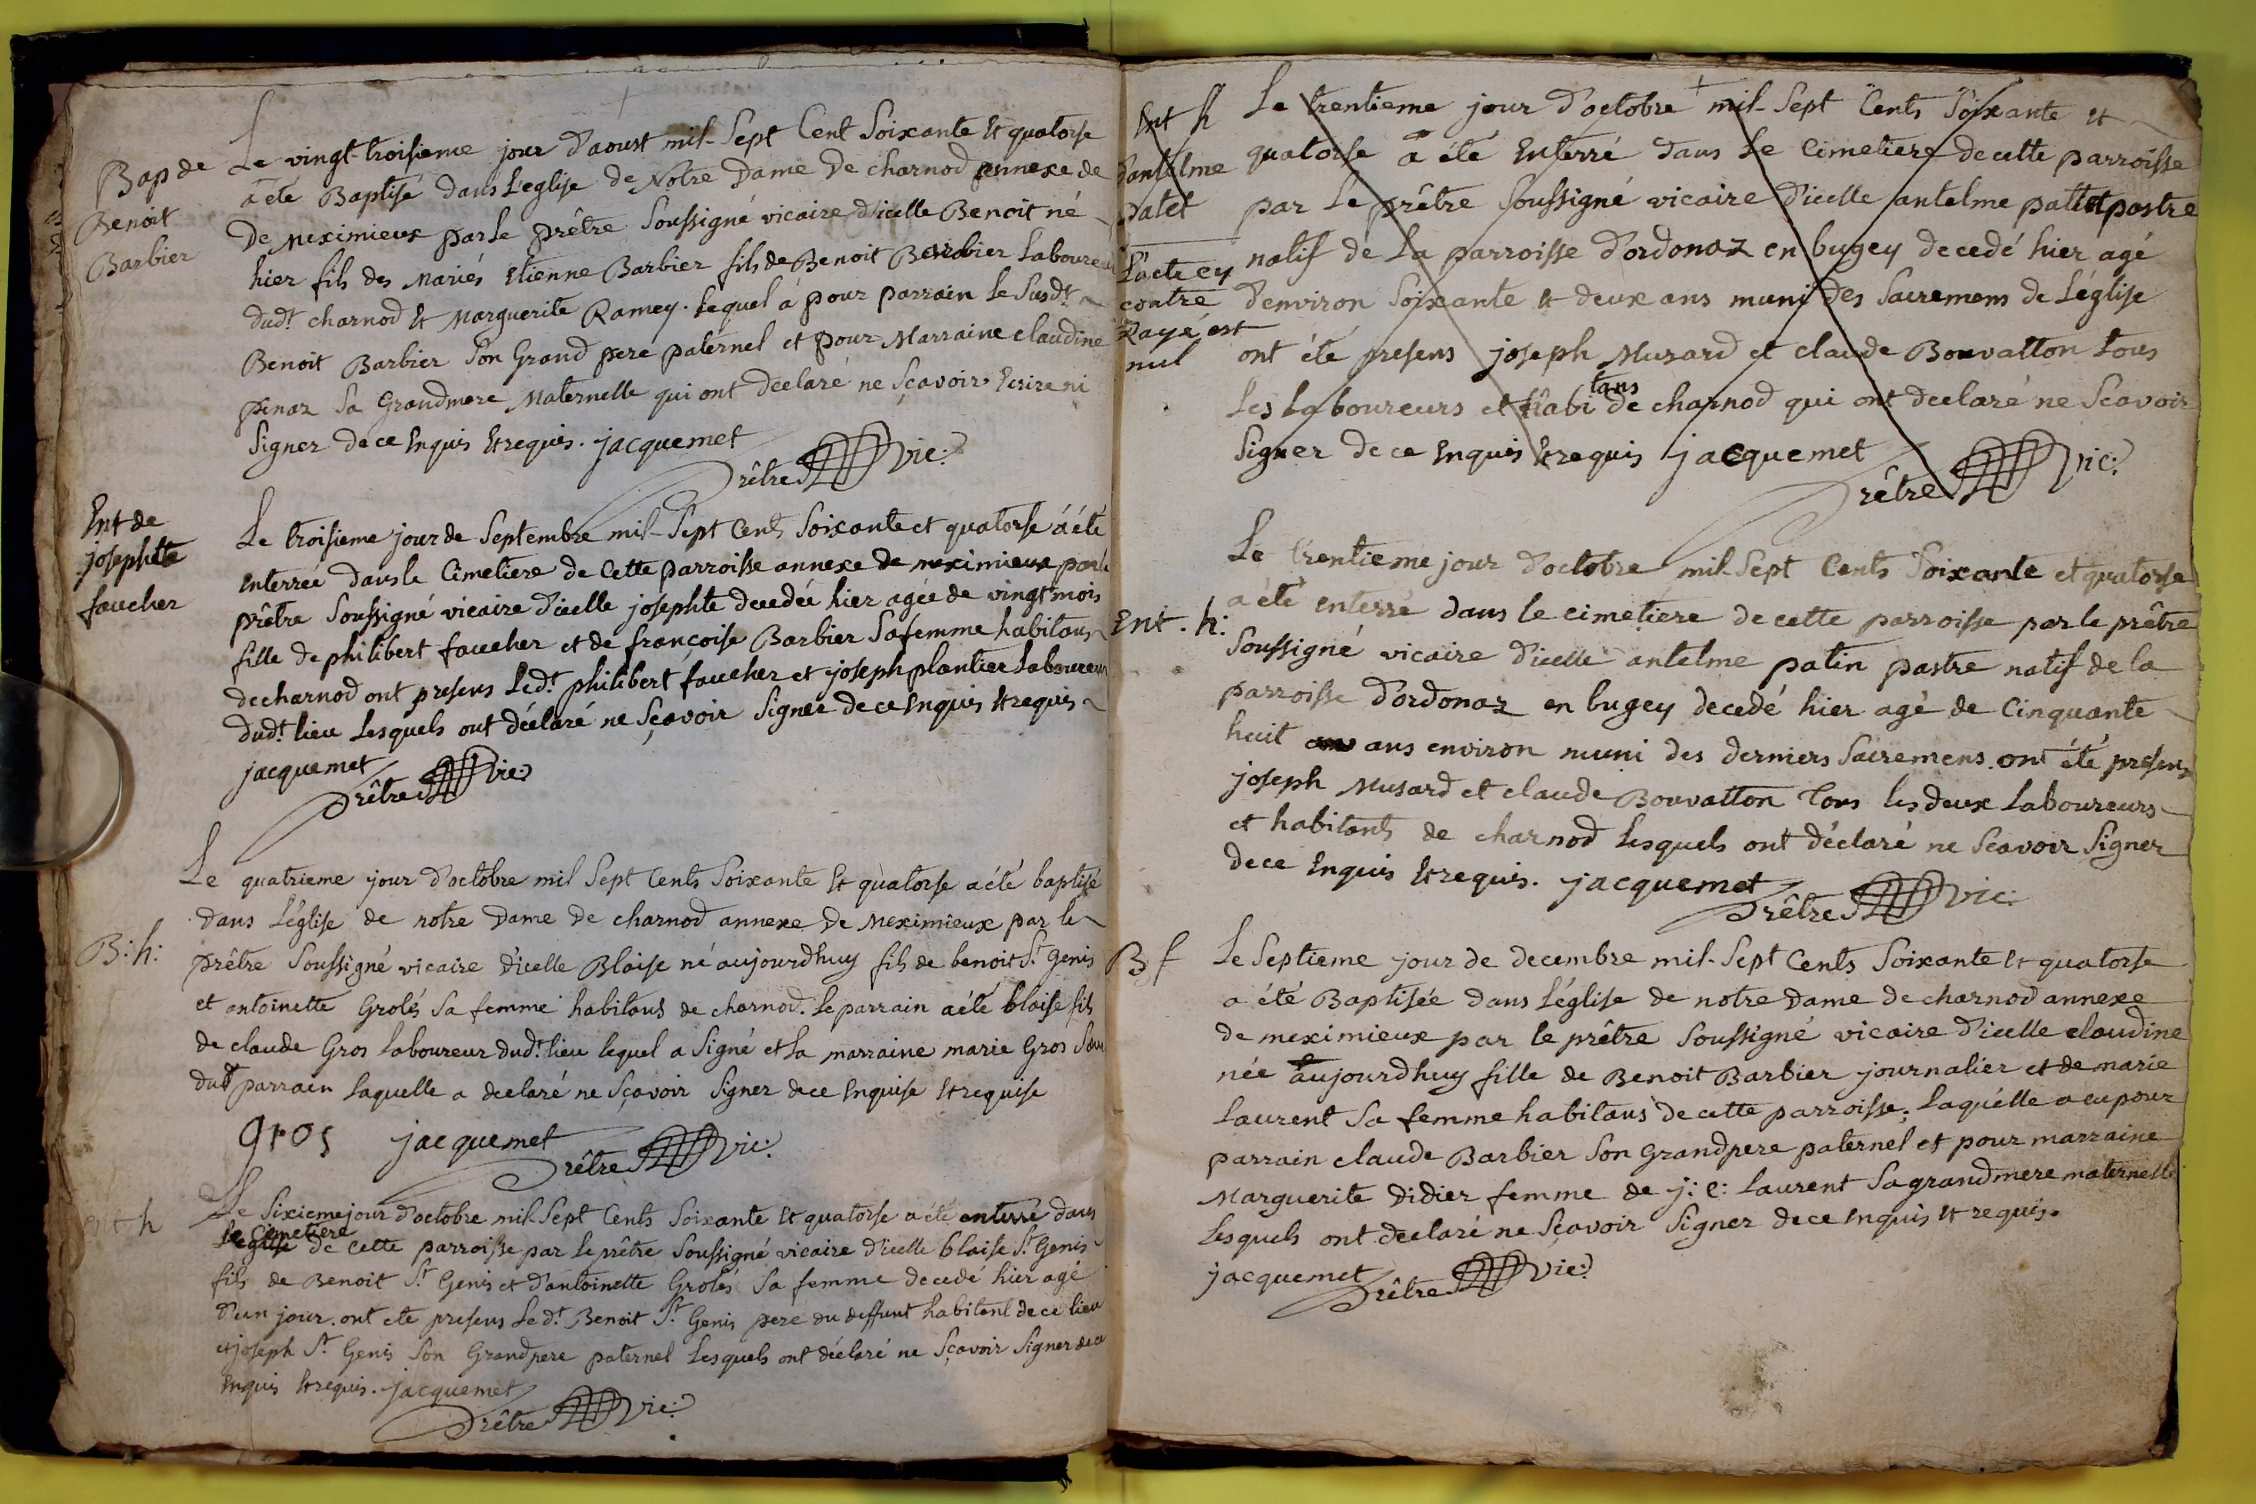 Bap de
Benoit
Barbier
Le vingt-troisieme jour d'aoust mil-Sept Cent Soixante et quatorse
a été Baptisé dans L'eglise de Notre Dame De charnod annexe de
De Meximieux par Le prêtre Soussigné vicaire d'icelle Benoit né
hier fils des Mariés Etienne Barbier fils de Benoit Barbier Laboureur
dud.t charnod et Marguerite Ramey. Lequel a pour parrain Le Susd.t
Benoit Barbier Son Grand pere paternel et pour Marraine claudine
penaz Sa Grandmere Maternelle qui ont declaré ne Sçavoir Ecrire ni
Signer de ce Enquis Et requis. jacquemet
Prêtre vic:
Ent de
josephte
faucher
Le troisieme jour de Septembre mil-Sept Cents Soixante et quatorse a été
Enterrée dans le Cimetiere de Cette parroisse annexe de meximieux par le
prêtre Soussigné vicaire d'icelle josephte decedée hier agée de vingt mois
fille de philibert faucher et de françoise Barbier Sa femme habitans
de charnod ont presens Led.t philibert faucher et joseph plantier Laboureurs
dud.t lieu Lesquels ont déclaré ne Sçavoir Signer de ce Enquis Et requis
jacquemet
Prêtre vic:
B: h:
Le quatrieme jour d'octobre mil Sept Cents Soixante Et quatorse a été baptisé
dans L'église de notre Dame De charnod annexe De Meximieux par le
prêtre Soussigné vicaire d'icelle Blaise né aujourdhuy fils de benoit S.t Genis
et antoinette Grolés Sa femme habitans de charnod. Le parrain a été blaise fils
de claude Gros Laboureur dud.t lieu lequel a Signé et La marraine marie Gros Sœur
dud.t parrain Laquelle a declaré ne Sçavoir Signer de ce Enquise Et requise
gros jacquemet
Prêtre vic:
ent h
Le Sixieme jour d'octobre mil Sept Cents Soixante Et quatorse a été enterré dans
Le Cimetiere
L'eglise de Cette parroisse par Le prêtre Soussigné vicaire d'icelle blaise S.t Genis
fils de Benoit S.t Genis et d'antoinette Grolés Sa femme decedé hier agé
d'un jour. ont eté presens Led.t Benoit S.t Genis pere du deffunt habitant de ce lieu
et joseph S.t Genis Son Grandpere paternel Lesquels ont déclaré ne Sçavoir Signer de ce
Enquis Et requis. jacquemet
Prêtre vic:
Ent h
d'antelme
patet
L'acte cy
contre
Rayé est
nul
Le trentieme jour d'octobre mil-Sept Cents Soixante et
quatorse a été Enterré dans Le Cimetiere de cette parroisse
par Le prêtre Soussigné vicaire d'icelle antelme patet pastre
natif de La parroisse d'ordonaz en bugey decedé hier agé
d'environ Soixante et deux ans muni des Sacremens de L'église
ont été presens joseph Musard et claude Bouvatton tous
tans
Les Laboureurs et habi de charnod qui ont declaré ne Scavoir
Signer de ce Enquis Et requis jacquemet
Prêtre vic:
Ent. h:
Le trentieme jour d'octobre mil-Sept Cents Soixante et quatorse
a été enterré dans le cimetiere de cette parroisse par le prêtre
Soussigné vicaire d'icelle antelme patin pastre natif de la
parroisse d'ordonaz en bugey decedé hier agé de Cinquante
huit ans environ muni des derniers Sacremens. ont été presens
joseph Musard et claude Bouvatton Tous les deux Laboureurs
et habitants de charnod Lesquels ont déclaré ne Scavoir Signer
de ce Enquis Et requis. jacquemet
Prêtre vic:
B f
Le Septieme jour de decembre mil-Sept Cents Soixante Et quatorse
a été Baptisée dans L'église de notre Dame de charnod annexe
de meximieux par le prêtre Soussigné vicaire d'icelle claudine
née aujourdhuy fille de Benoit Barbier journalier et de marie
Laurent Sa femme habitans de cette parroisse. Laquelle a eu pour
parrain claude Barbier Son Grandpere paternel et pour marraine
Marguerite Didier femme de j: c: Laurent Sa grandmere maternelle
Lesquels ont declaré ne Sçavoir Signer de ce Enquis Et requis.
jacquemet
Prêtre vic: